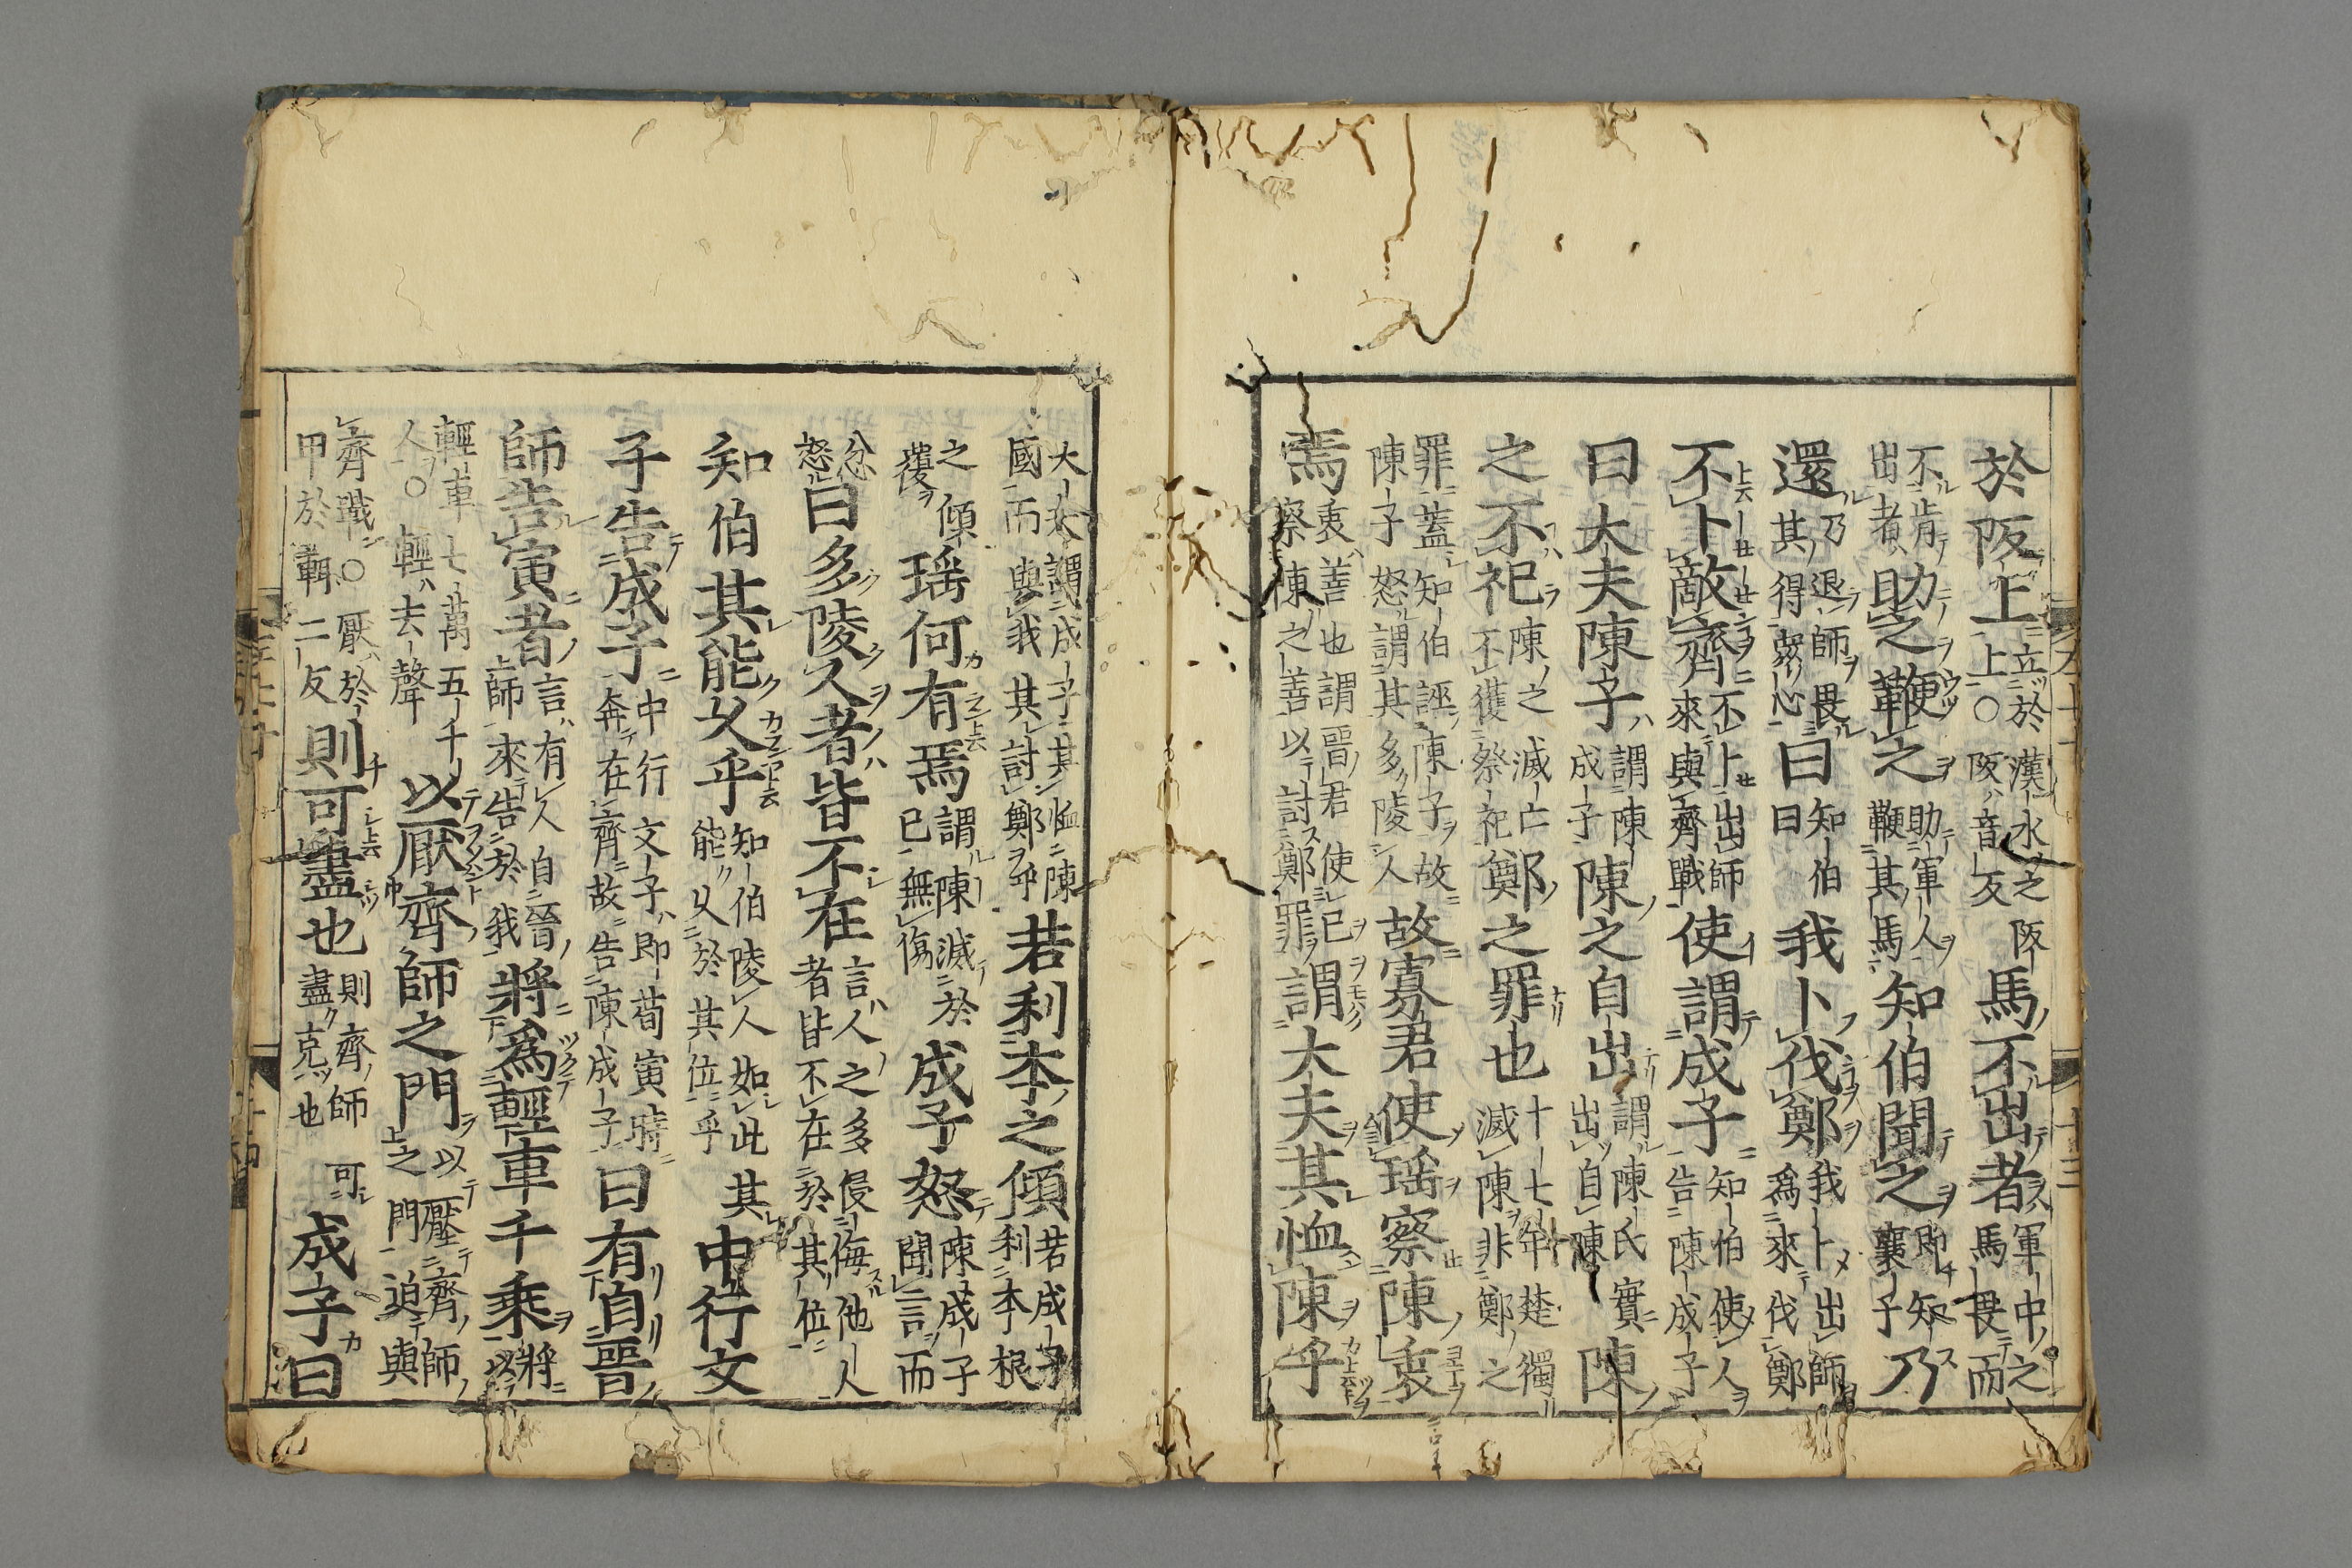 於阪上立於漢水之阪上○阪音反馬不出者軍中之馬畏而
不肯出者助之鞭之助軍人鞭其馬知伯聞之即知襄子乃
還乃退師畏其得衆心曰知伯曰我卜伐鄭我卜出師爲來伐鄭
不卜敵齊不卜出師來與齊戰使謂成子知伯使人告陳成子
曰大夫陳子謂陳成子陳之自出謂陳氏實出自陳陳
之不祀陳之滅亡不獲祭祀鄭之罪也十七年楚獨滅陳非鄭之
罪蓋知伯誣陳子故陳子怒謂其多陵人故寡君使瑶察陳衷
焉衷善也謂晉君使已察陳之善以討鄭罪謂大夫其恤陳乎
大夫謂成子其恤陳國而與我其討鄭乎若利本之傾若成子利本根
之傾覆瑶何有焉謂陳滅於已無傷成子怒陳成子聞言而
忿怒曰多陵人者皆不在言人之多侵侮他人者皆不在於其位
知伯其能乆乎知伯陵人如此其能乆於其位乎中行文
子告成子中行文子即荀寅時奔在齊故告陳成子曰有自晉
師告寅者言有人自晉師來告於我將爲輕車千乘將以
輕車七萬五千人○輕去聲以厭齊師之門以壓齊師之門迫與
齊戰○厭於甲於輒二反則可盡也則齊師可盡克也成子曰